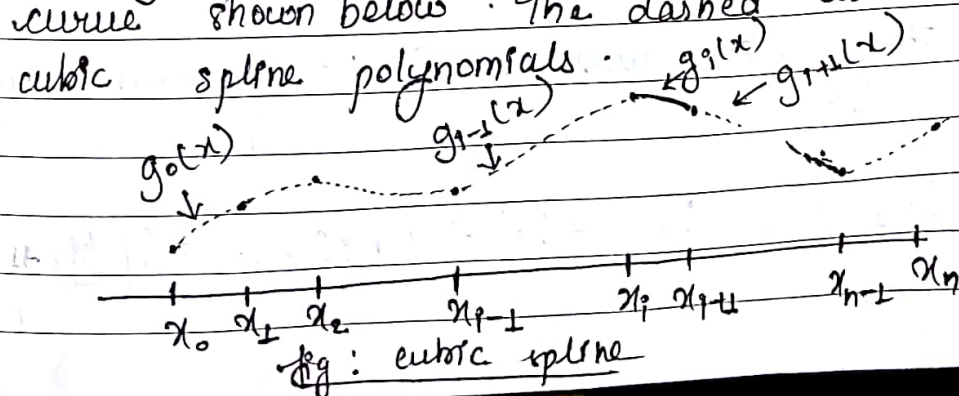 curve shown below. The dashed
cubic spline polynomials.
g₀(x)
gᵢ₋₁(x)
gᵢ(x)
gᵢ₊₁(x)
x₀ x₁ x₂ xᵢ₋₁ xᵢ xᵢ₊₁ xₙ₋₁ xₙ
fig: cubic spline